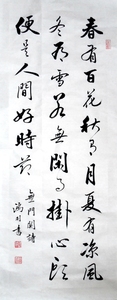 春有百花秋有月夏有涼風
冬有雪若無閑事掛心頭
便是人間好時節
無門關詩
書